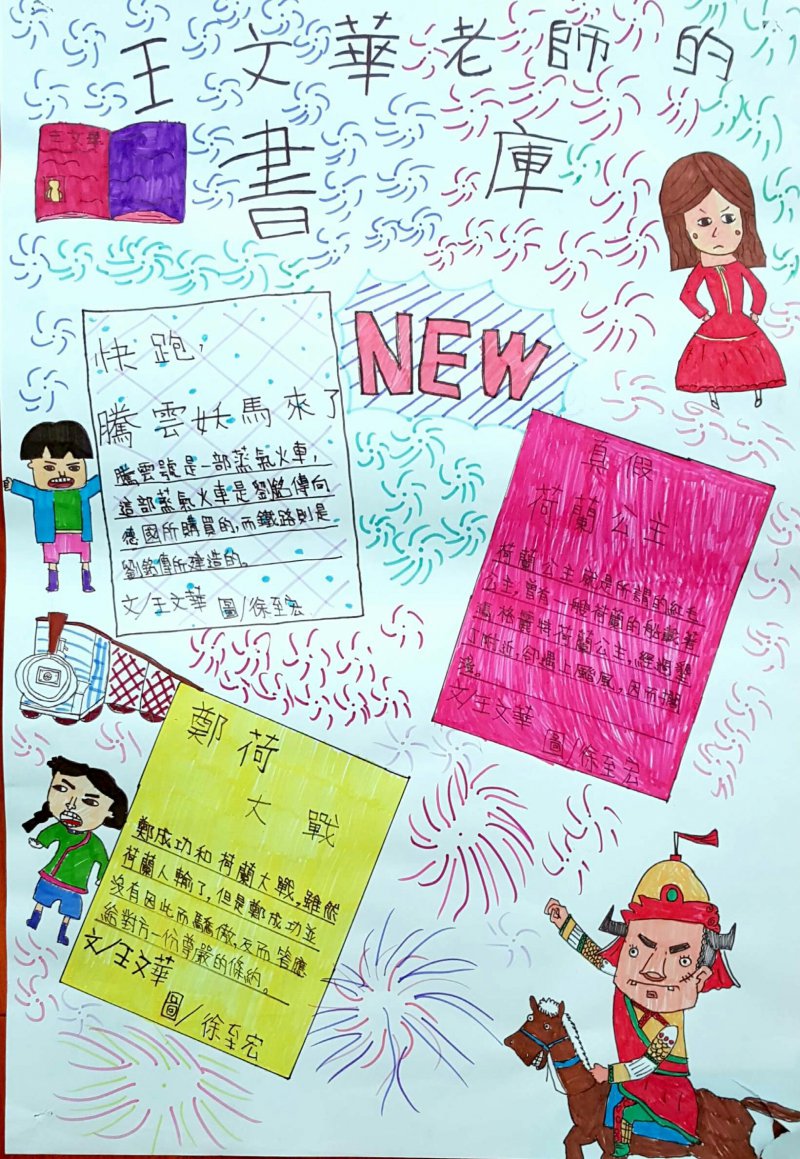 王文華老師的
書庫
王文華
NEW
快跑,
騰雲妖馬來了
騰雲號是一部蒸氣火車,
這部蒸氣火車是劉銘傳向
德國所購買的,而鐵路則是
劉銘傳所建造的。
文/王文華 圖/徐至宏
真假
荷蘭公主
荷蘭公主就是所謂的紅毛
公主,曾有一艘荷蘭的船載著
瑪格麗特荷蘭公主,經過墾
丁附近,卻遇上颱風,因而擱
淺。
文/王文華
圖/徐至宏
鄭荷
大戰
鄭成功和荷蘭大戰,雖然
荷蘭人輸了,但是鄭成功並
沒有因此而驕傲,反而答應
給對方一份尊嚴的條約。
文/王文華
圖/徐至宏